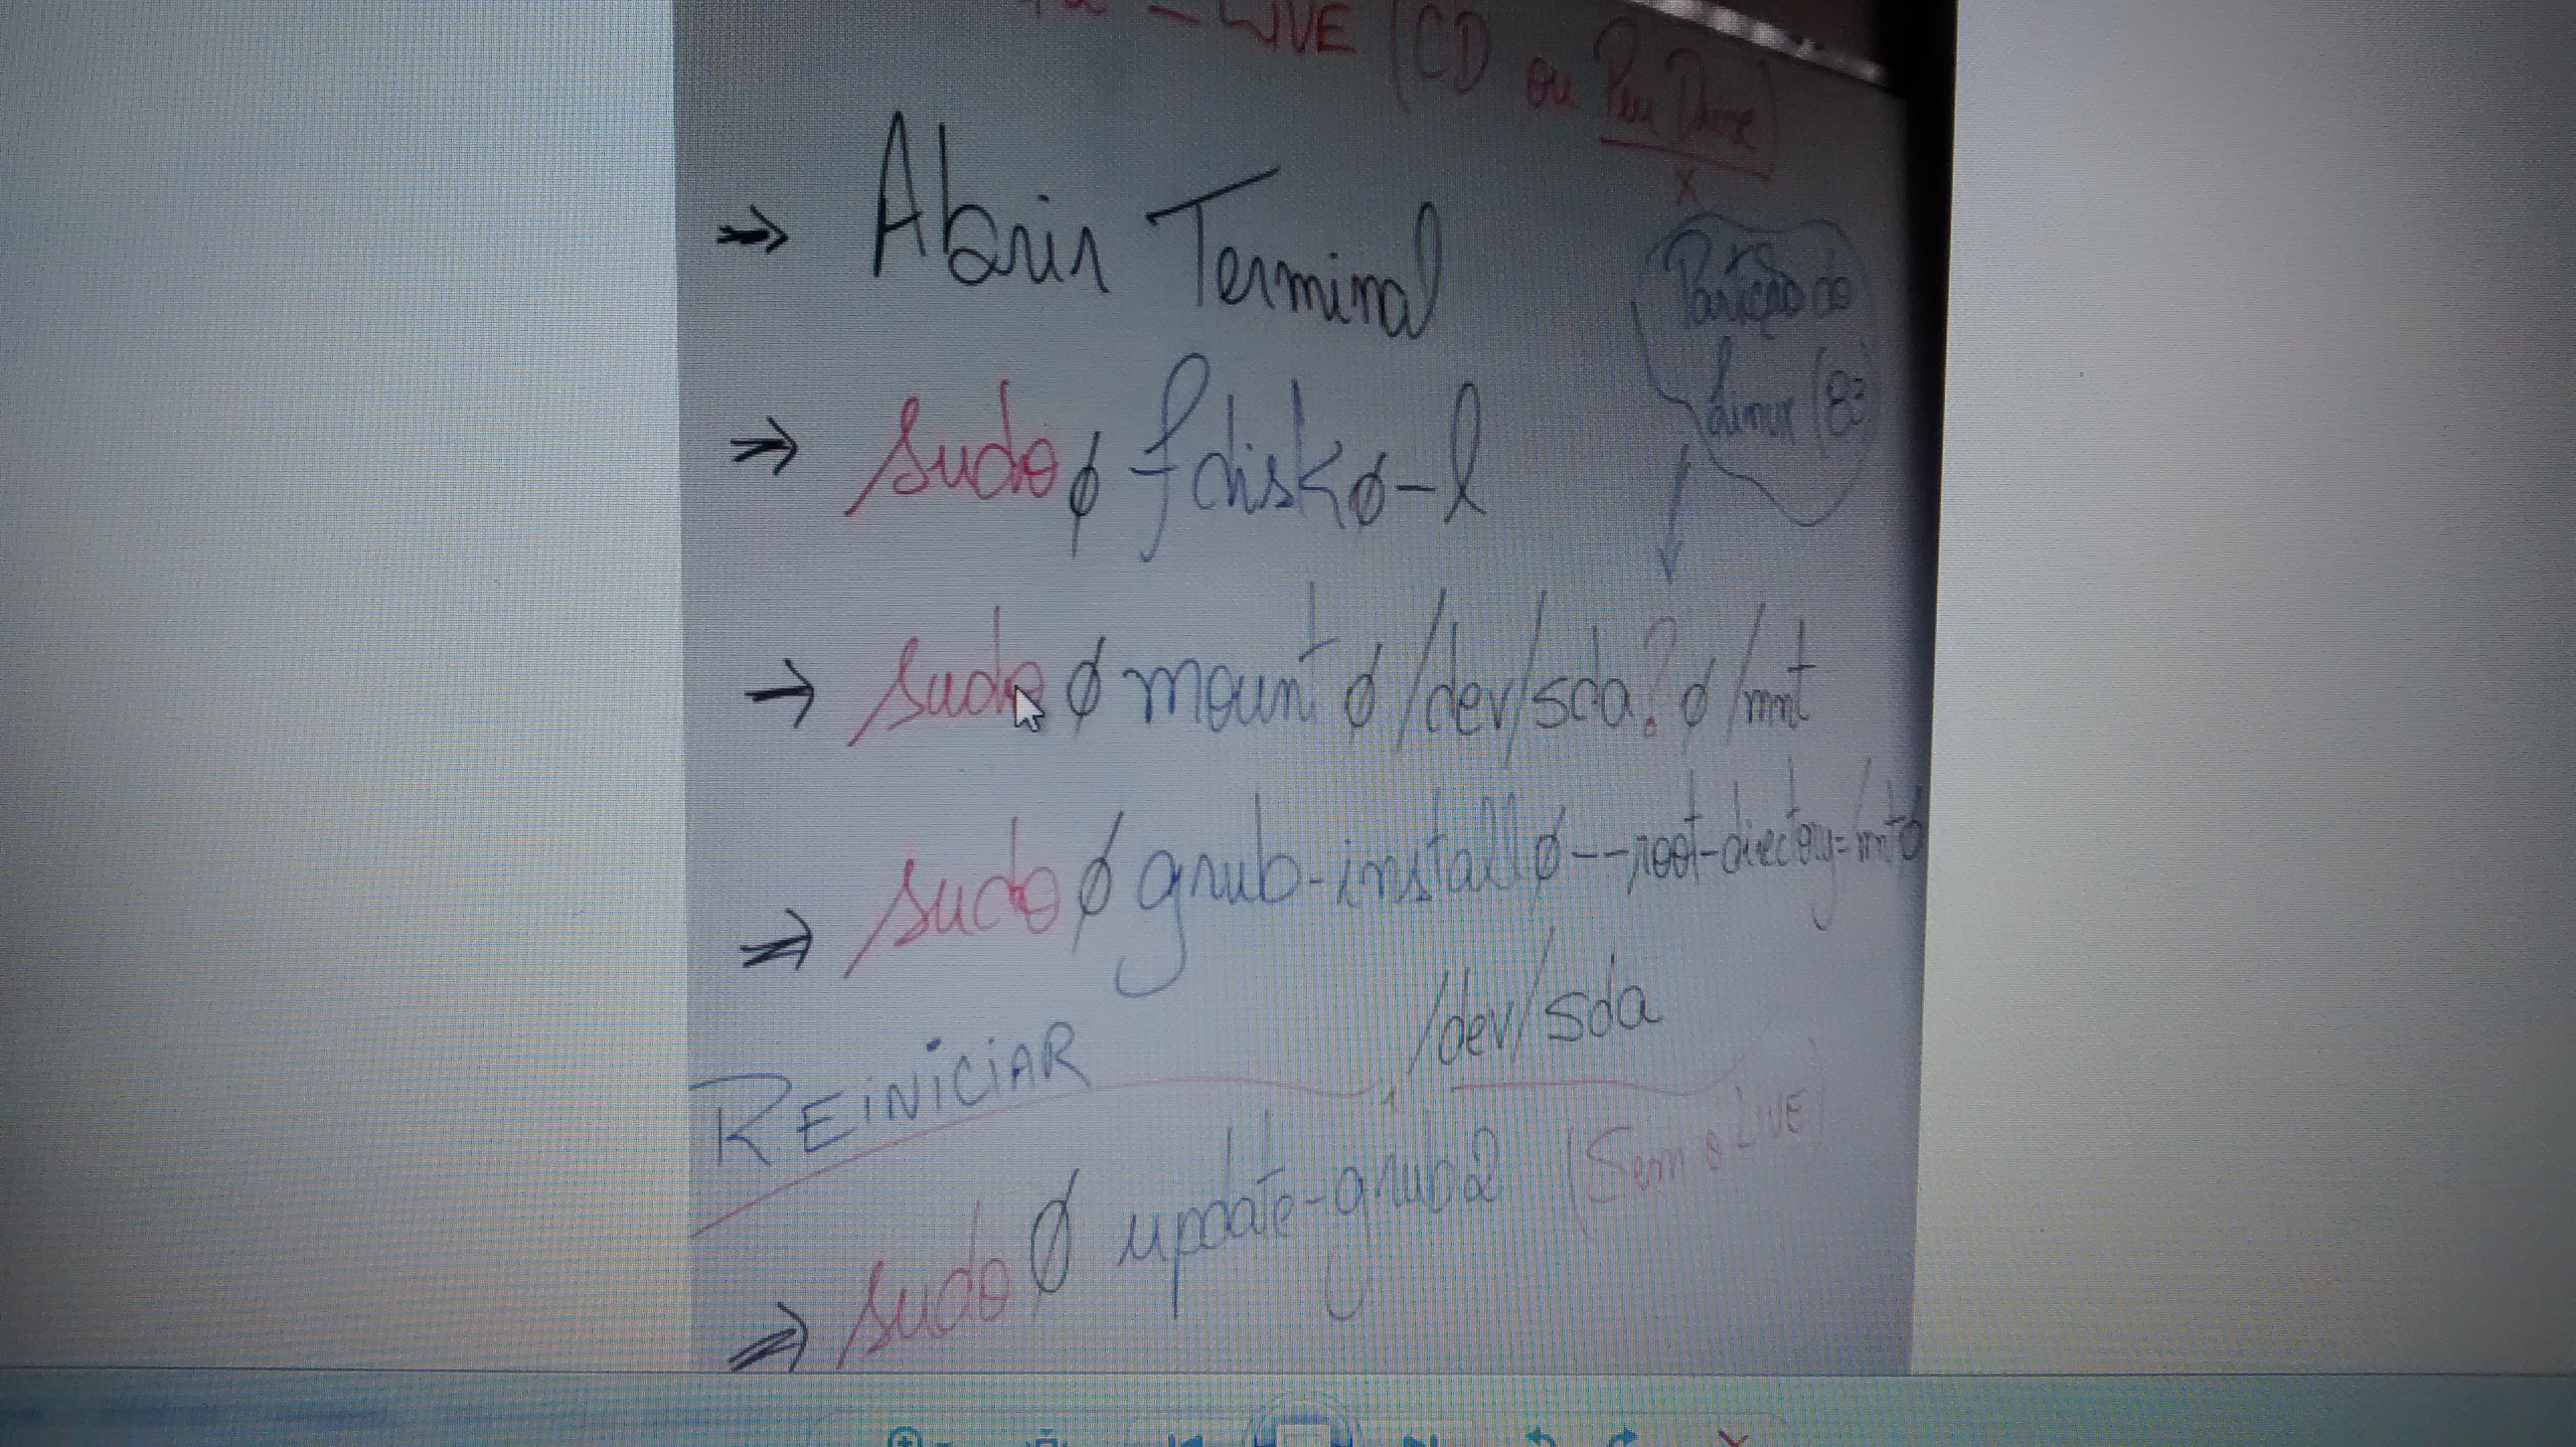 - LIVE (CD ou Pen Drive)
→ Abrir Terminal
Partição do
Linux (83
→ sudo ∅ fdisk ∅ -l
→ sudo ∅ mount ∅ /dev/sda? ∅ /mnt
→ sudo ∅ grub-install ∅ --root-directory=/mnt ∅
/dev/sda
REiNiCiAR
(Sem o LIVE)
→ sudo ∅ update-grub2